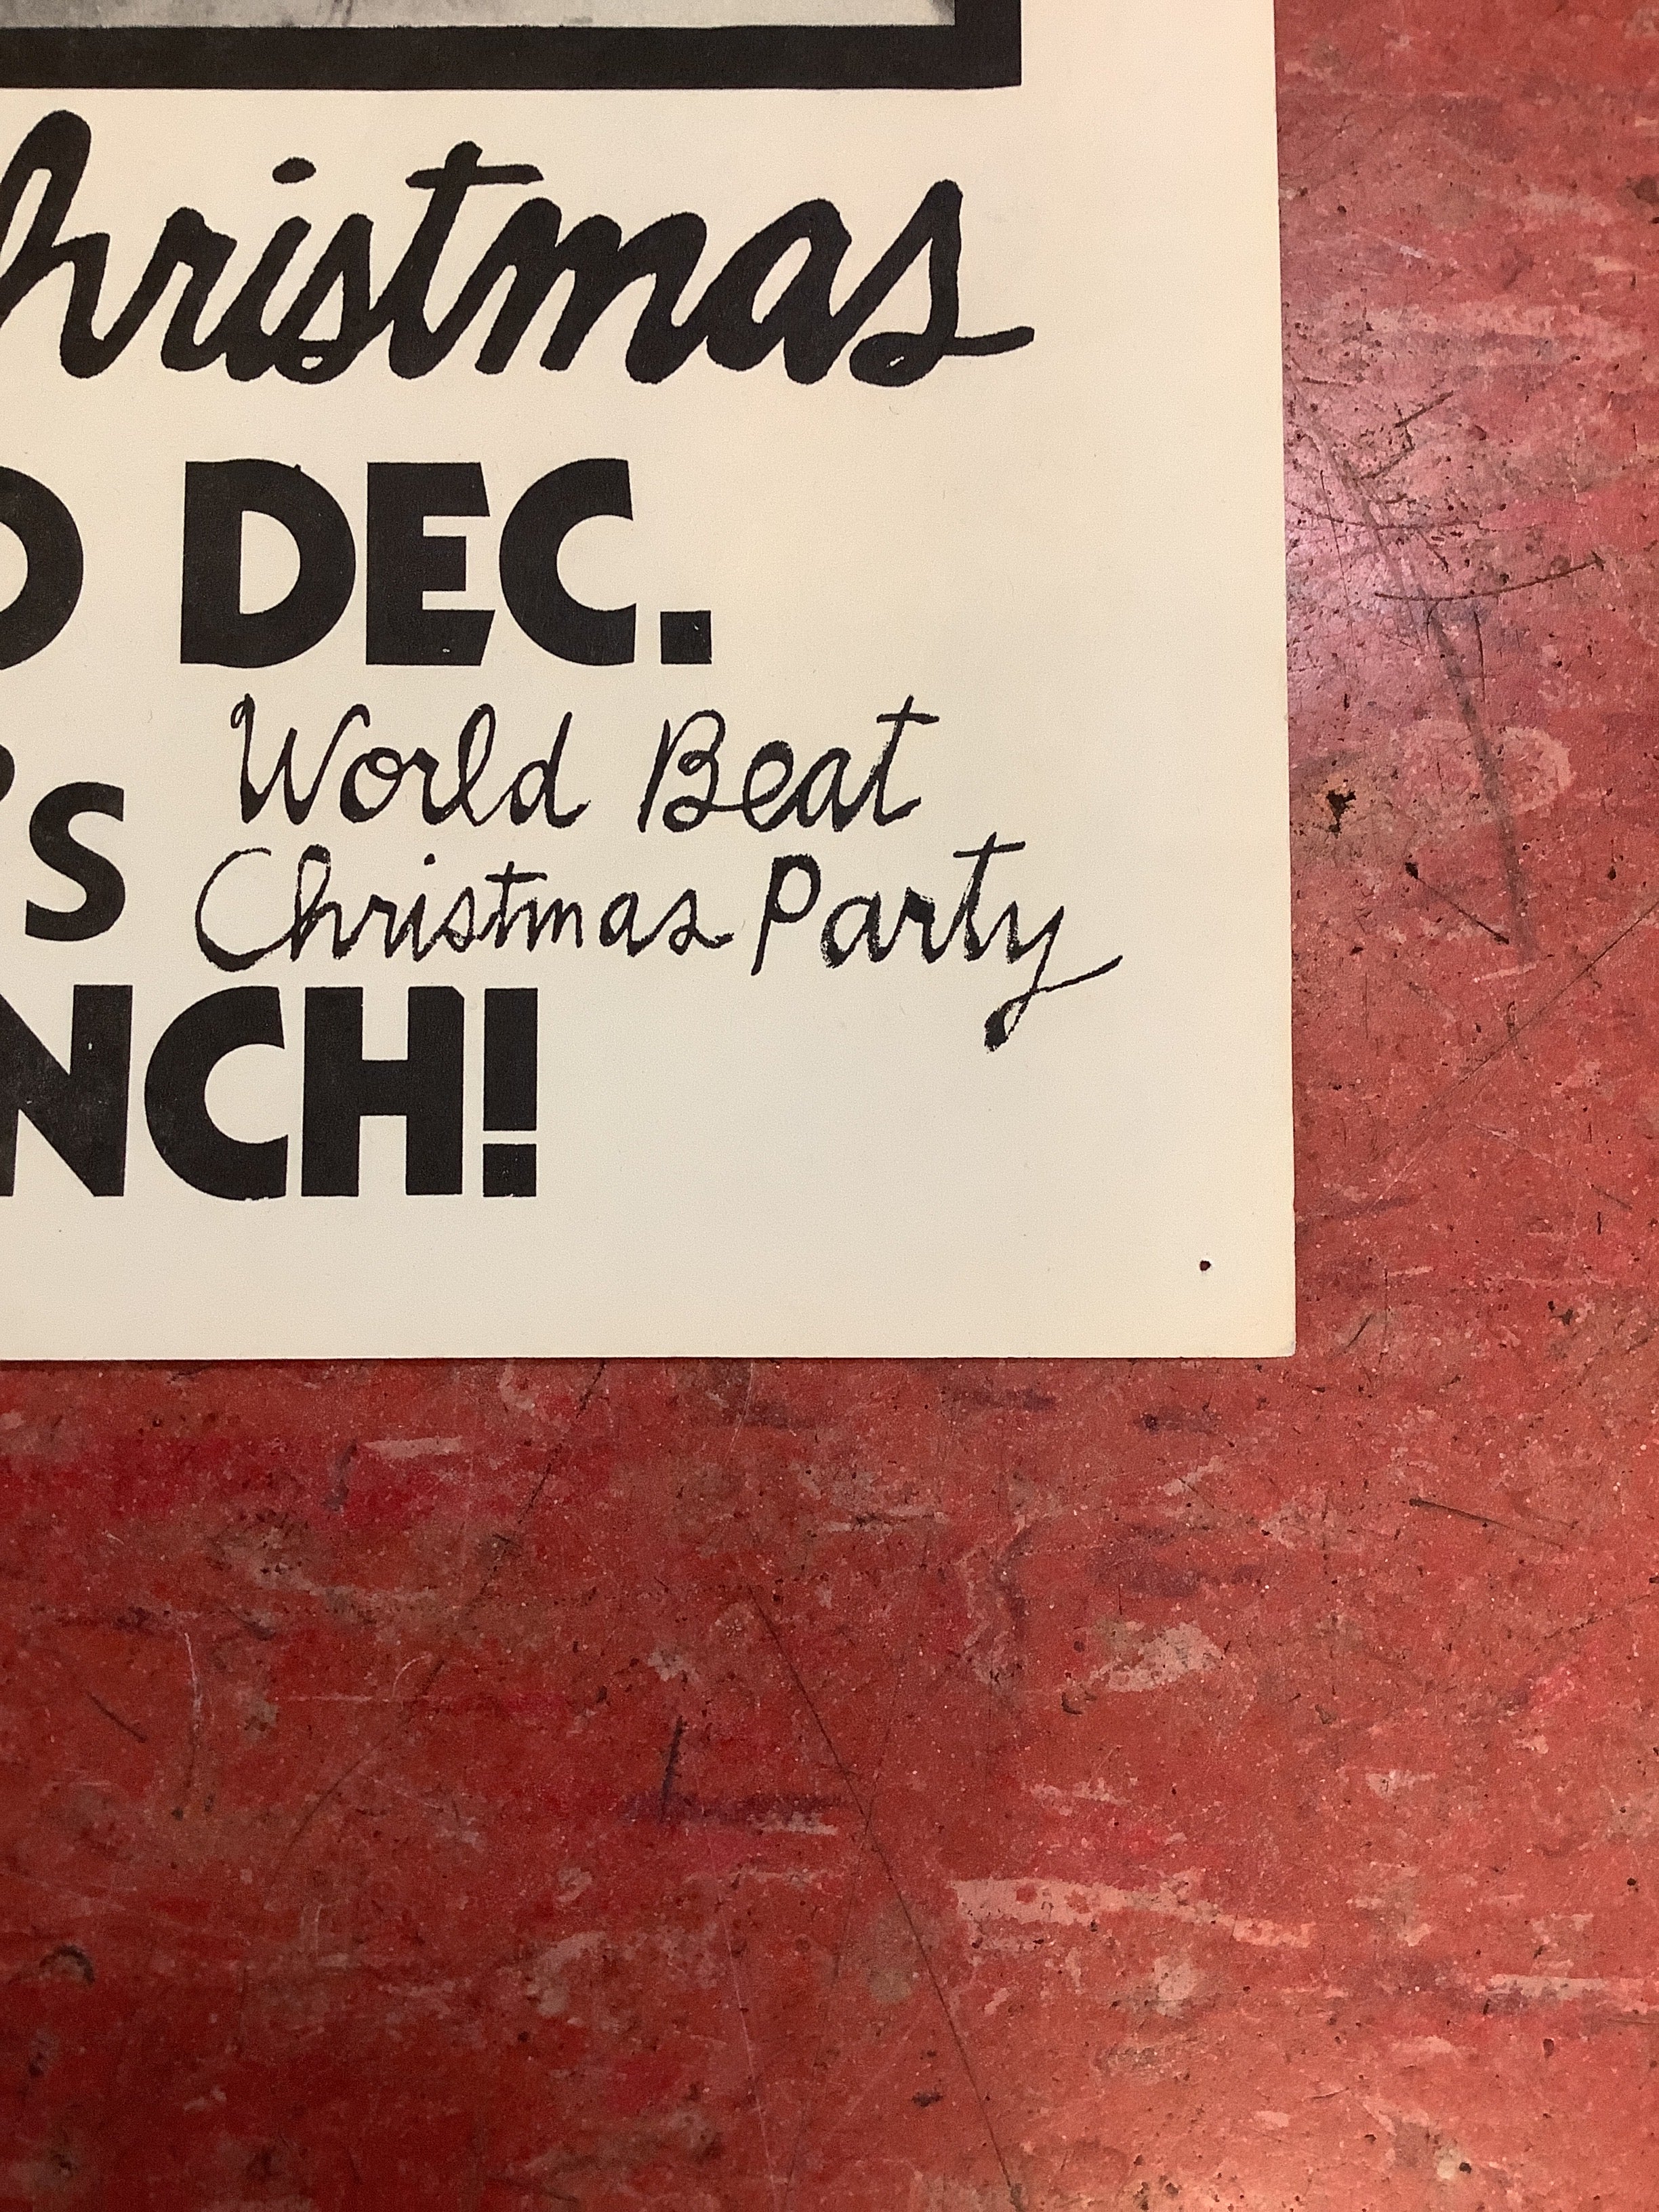 hristmas
O DEC.
's World Beat
Christmas Party
NCH!